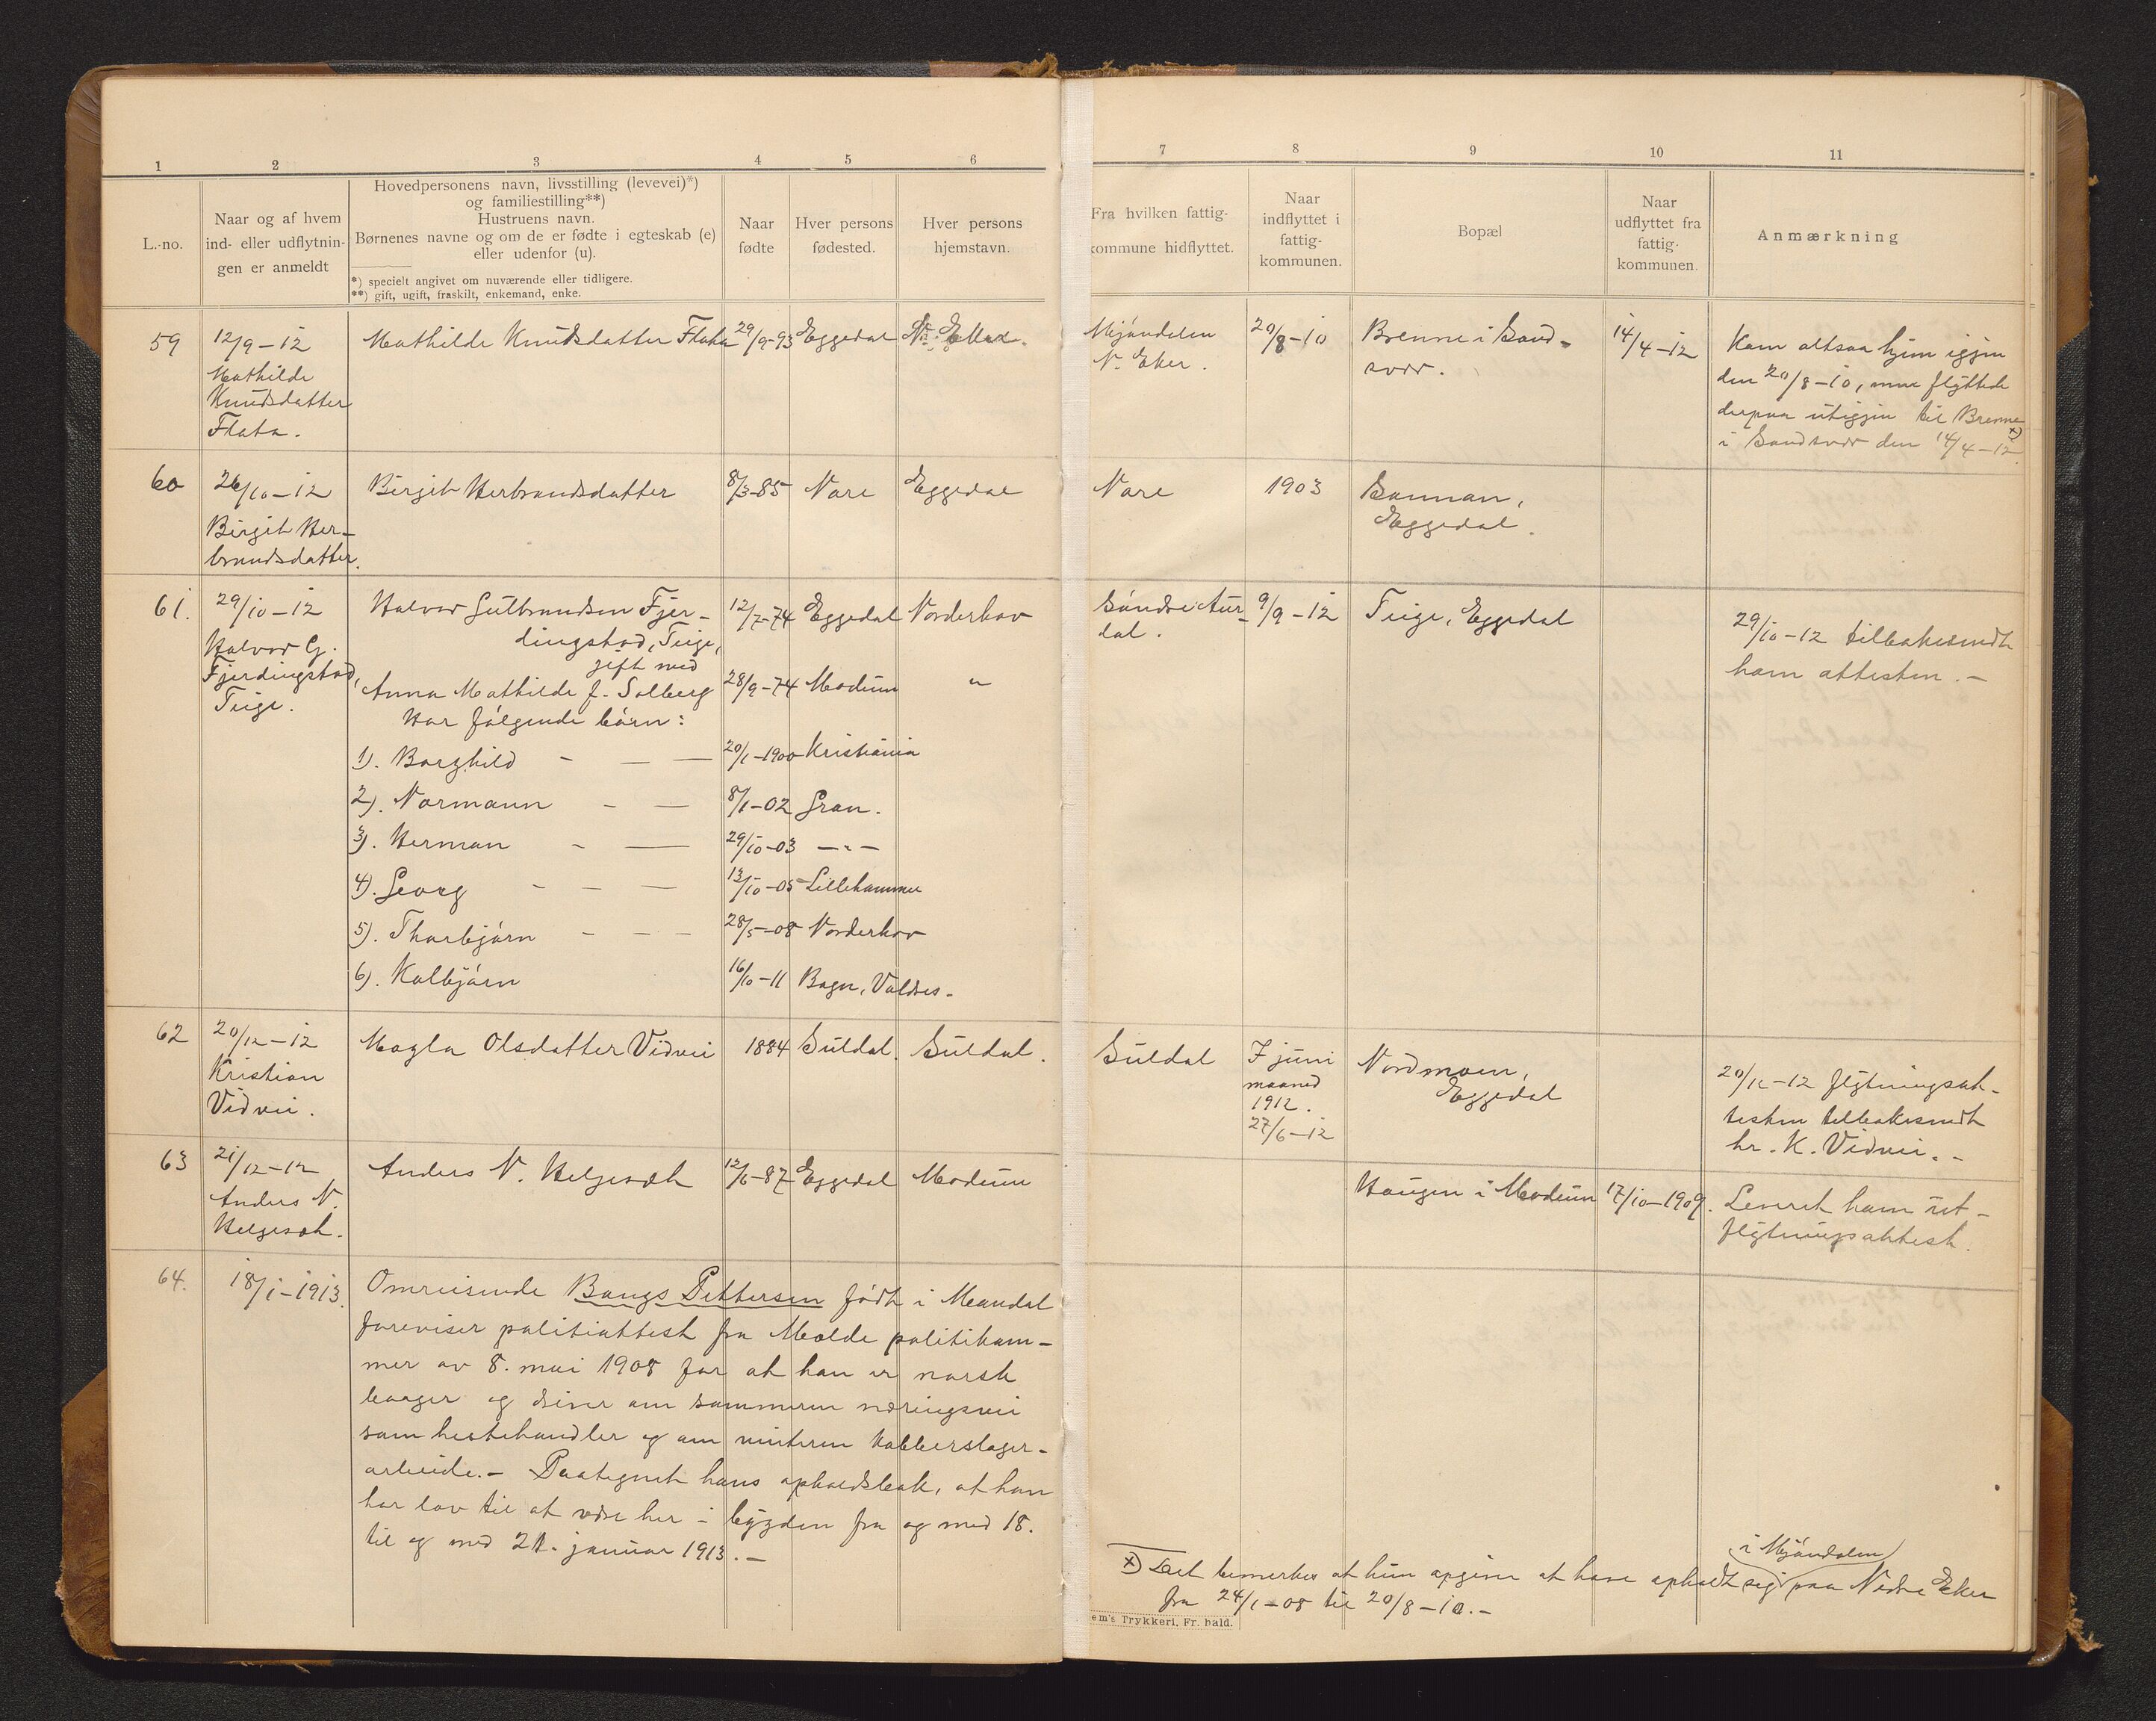 1 2 3 4 5 6 7 8 9 10 11
L.-no.
Naar og af hvem
ind- eller udflytnin-
gen er anmeldt
Hovedpersonens navn, livsstilling (levevei)*)
og familiestilling**)
Hustruens navn.
Børnenes navne og om de er fødte i egteskab (e)
eller udenfor (u).
*) specielt angivet om nuværende eller tidligere.
**) gift, ugift, fraskilt, enkemand, enke.
Naar
fødte
Hver persons
fødested.
Hver persons
hjemstavn.
Fra hvilken fattig-
kommune hidflyttet.
Naar
indflyttet i
fattig-
kommunen.
Bopæl
Naar
udflyttet fra
fattig-
kommunen.
Anmærkning
59
12/9-12
Mathilde
Knudsdatter
Flata.
Mathilde Knudsdatter Flata
29/9-93
Eggedal
N. Eker.
Mjøndalen
N. Eker.
20/8-10
Brenne i Sand-
svær.
14/4-12
Kom altsaa hjem igjen
den 20/8-10, men flyttede
derpaa utigjen til Brenne
i Sandsvær den 14/4-12. x)
60
26/10-12
Birgit Her-
brandsdatter.
Birgit Herbrandsdatter
8/3-85
Nore
Eggedal
Nore
1903
Sønnan,
Eggedal.
61.
29/10-12
Halvor G.
Fjerdingstad,
Teige.
Halvor Gulbrandsen Fjer-
dingstad, Teige,
gift med
12/7-74
Eggedal
Norderhov
Søndre Aur-
dal.
9/9-12
Teige, Eggedal
29/10-12 tilbakesendt
ham attesten.-
Anna Mathilde f. Solberg
28/9-74
Modum
"
Har følgende børn:
1). Borghild - — — 20/1-1900 Kristiania
2). Normann - — 8/1-02 Gran.
3). Herman - — 29/10-03 —"—
4). Georg - - — 13/10-05 Lillehammer
5). Thorbjørn - - — 28/5-08 Norderhov
6). Kolbjørn 16/10-11 Bagn, Valdres.
62
20/12-12
Kristian
Vidvei.
Magla Olsdatter Vidvei
1884
Suldal.
Suldal.
Suldal
I juni
maaned
1912.
27/6-12
Nordmoen,
Eggedal
20/12-12 flytningsat-
testen tilbakesendt
hr. K. Vidvei.-
63
21/12-12
Anders N.
Helgesæt.
Anders N. Helgesæt
12/6-87
Eggedal
Modum
Haugen i Modum
17/10-1909.
Leveret ham ut-
flytningsattest.
64.
18/1-1913.
Omreisende Bangs Pettersen født i Mandal
foreviser politiattest fra Molde politikam-
mer av 8. mai 1908 for at han er norsk
borger og driver om sommeren næringsvei
som hestehandler og om vinteren kobberslager-
arbeide.- Paategnet hans opholdsbok, at han
har lov til at være her i bygden fra og med 18.
til og med 21. januar 1913.-
i Mjøndalen
x) Det bemerkes at hun opgiver at have opholdt sig paa Nedre Eker
fra 24/1-08 til 20/8-10.-
em's Trykkeri, Fr. hald.